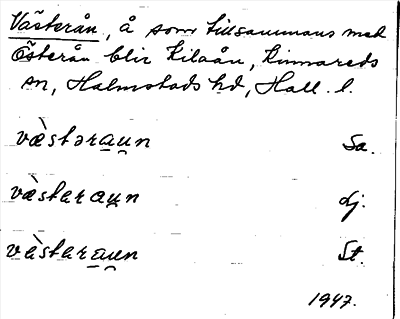 Västerån, å som tillsammans med
Österån blir Kilaån, Kinnareds
sn, Halmstads hd, Hall. l.
væ̀stərau̯n Sa.
væ̀starau̯n dj.
væ̀starau̯n St.
1947.